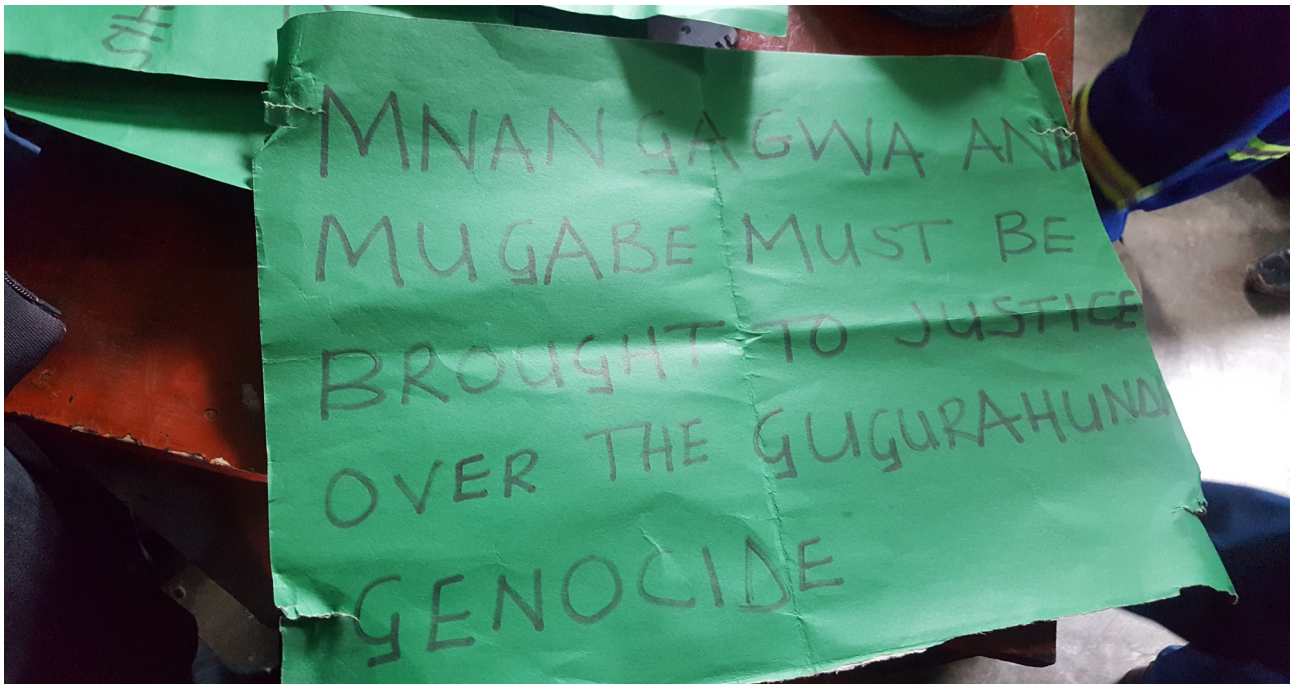 MNANGAGWA AND
MUGABE MUST BE
BROUGHT TO JUSTICE
OVER THE GUGURAHUNDI
GENOCIDE